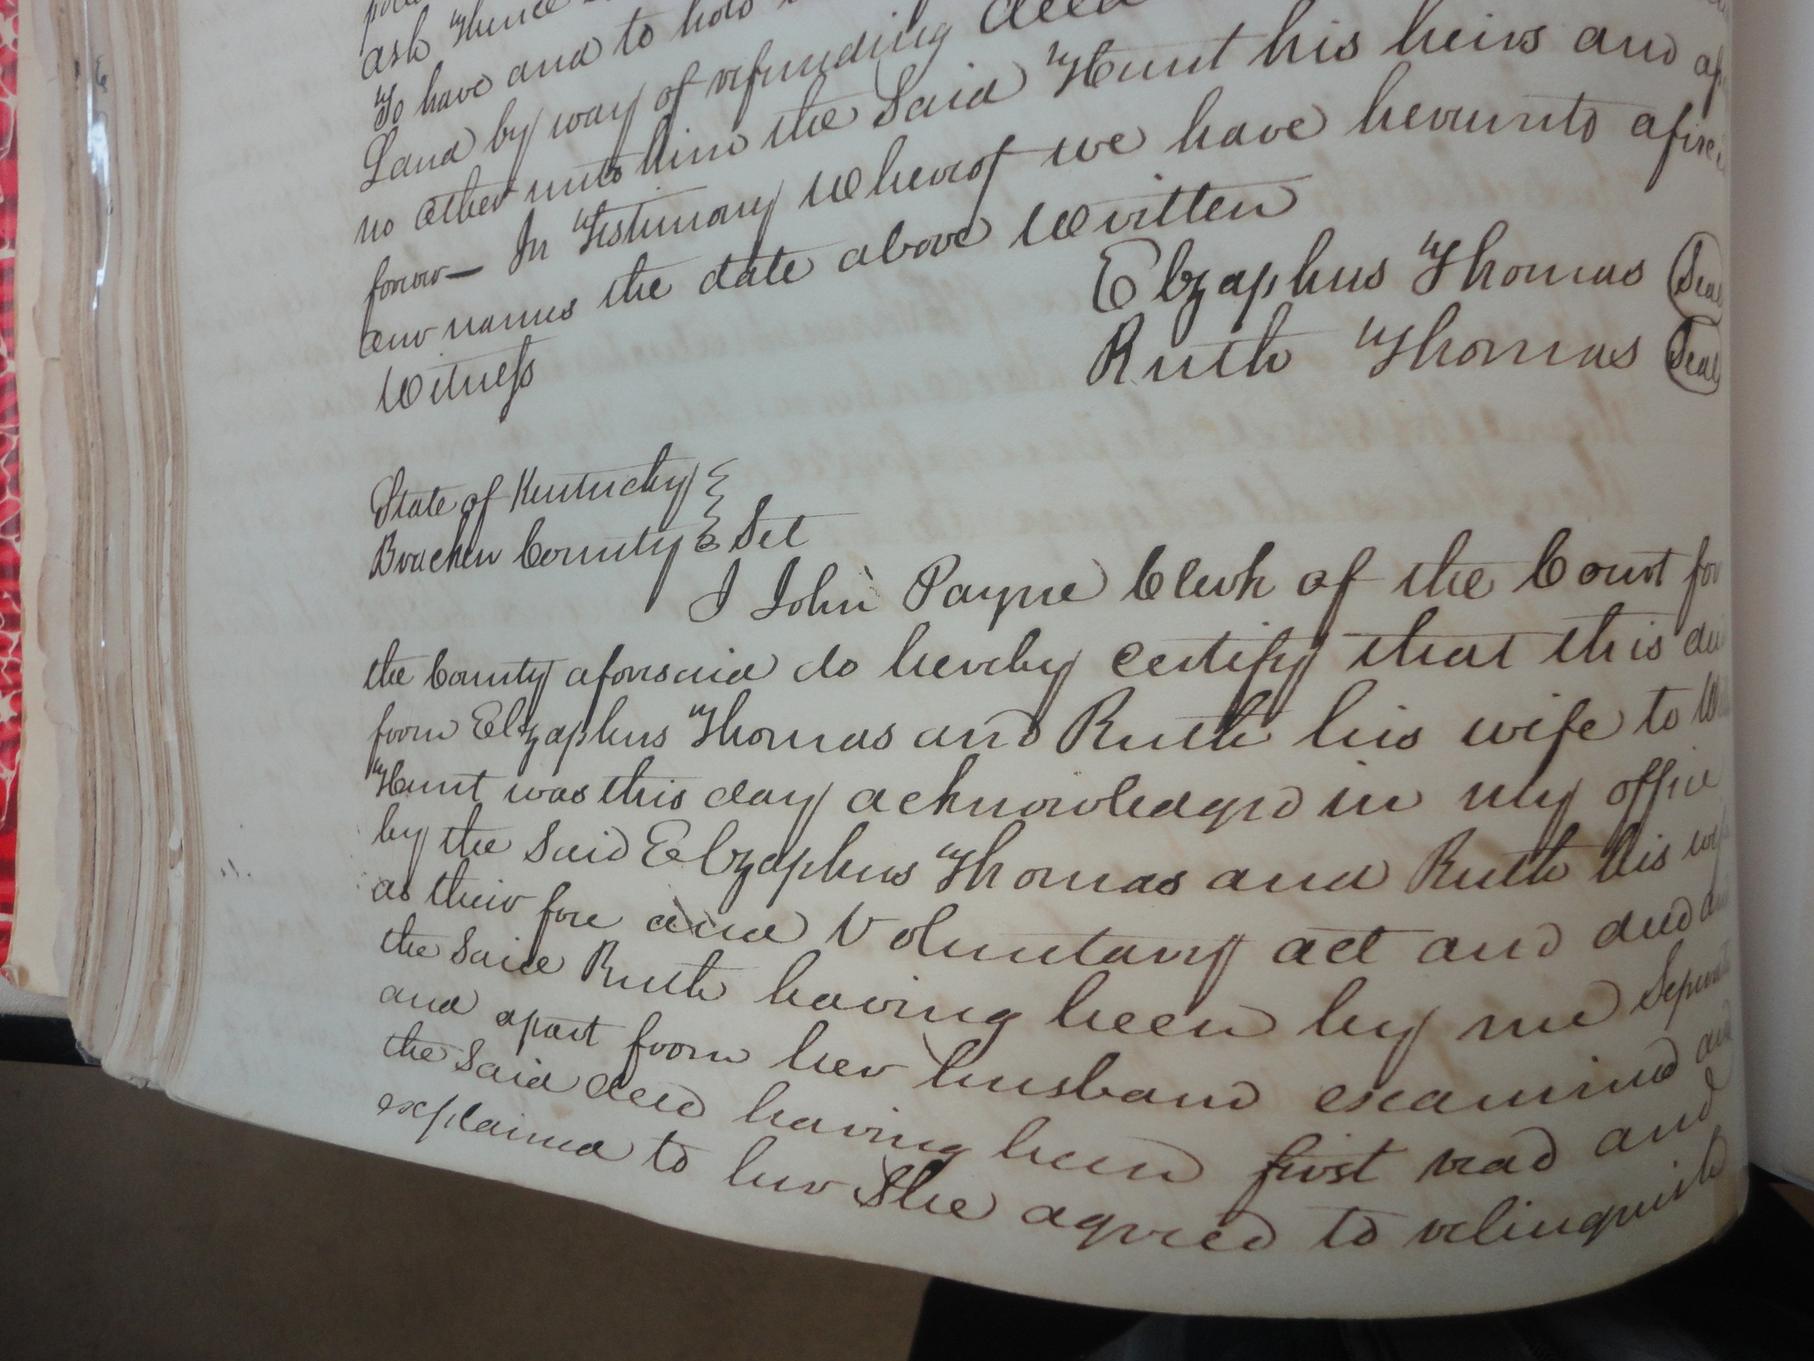 ash Thence
To have and to hold
Land by way of refunding deed
no other unto him the Said Hunt his heirs and
forever — In Testimony Whereof we have hereunto
our names the date above Written
Elzaphus Thomas Seal
Ruth Thomas Seal
Witness
State of Kentucky
Bracken County Sct
I John Payne Clerk of the Court for
the County aforesaid do hereby certify that this
from Elzaphus Thomas and Ruth his wife to
Hunt was this day acknowledged in my office
by the Said Elzaphus Thomas and Ruth his
as their free and Voluntary act and deed
the Said Ruth having been by me
and apart from her husband examined and
the Said deed having been first read and
explained to her She agreed to relinquish